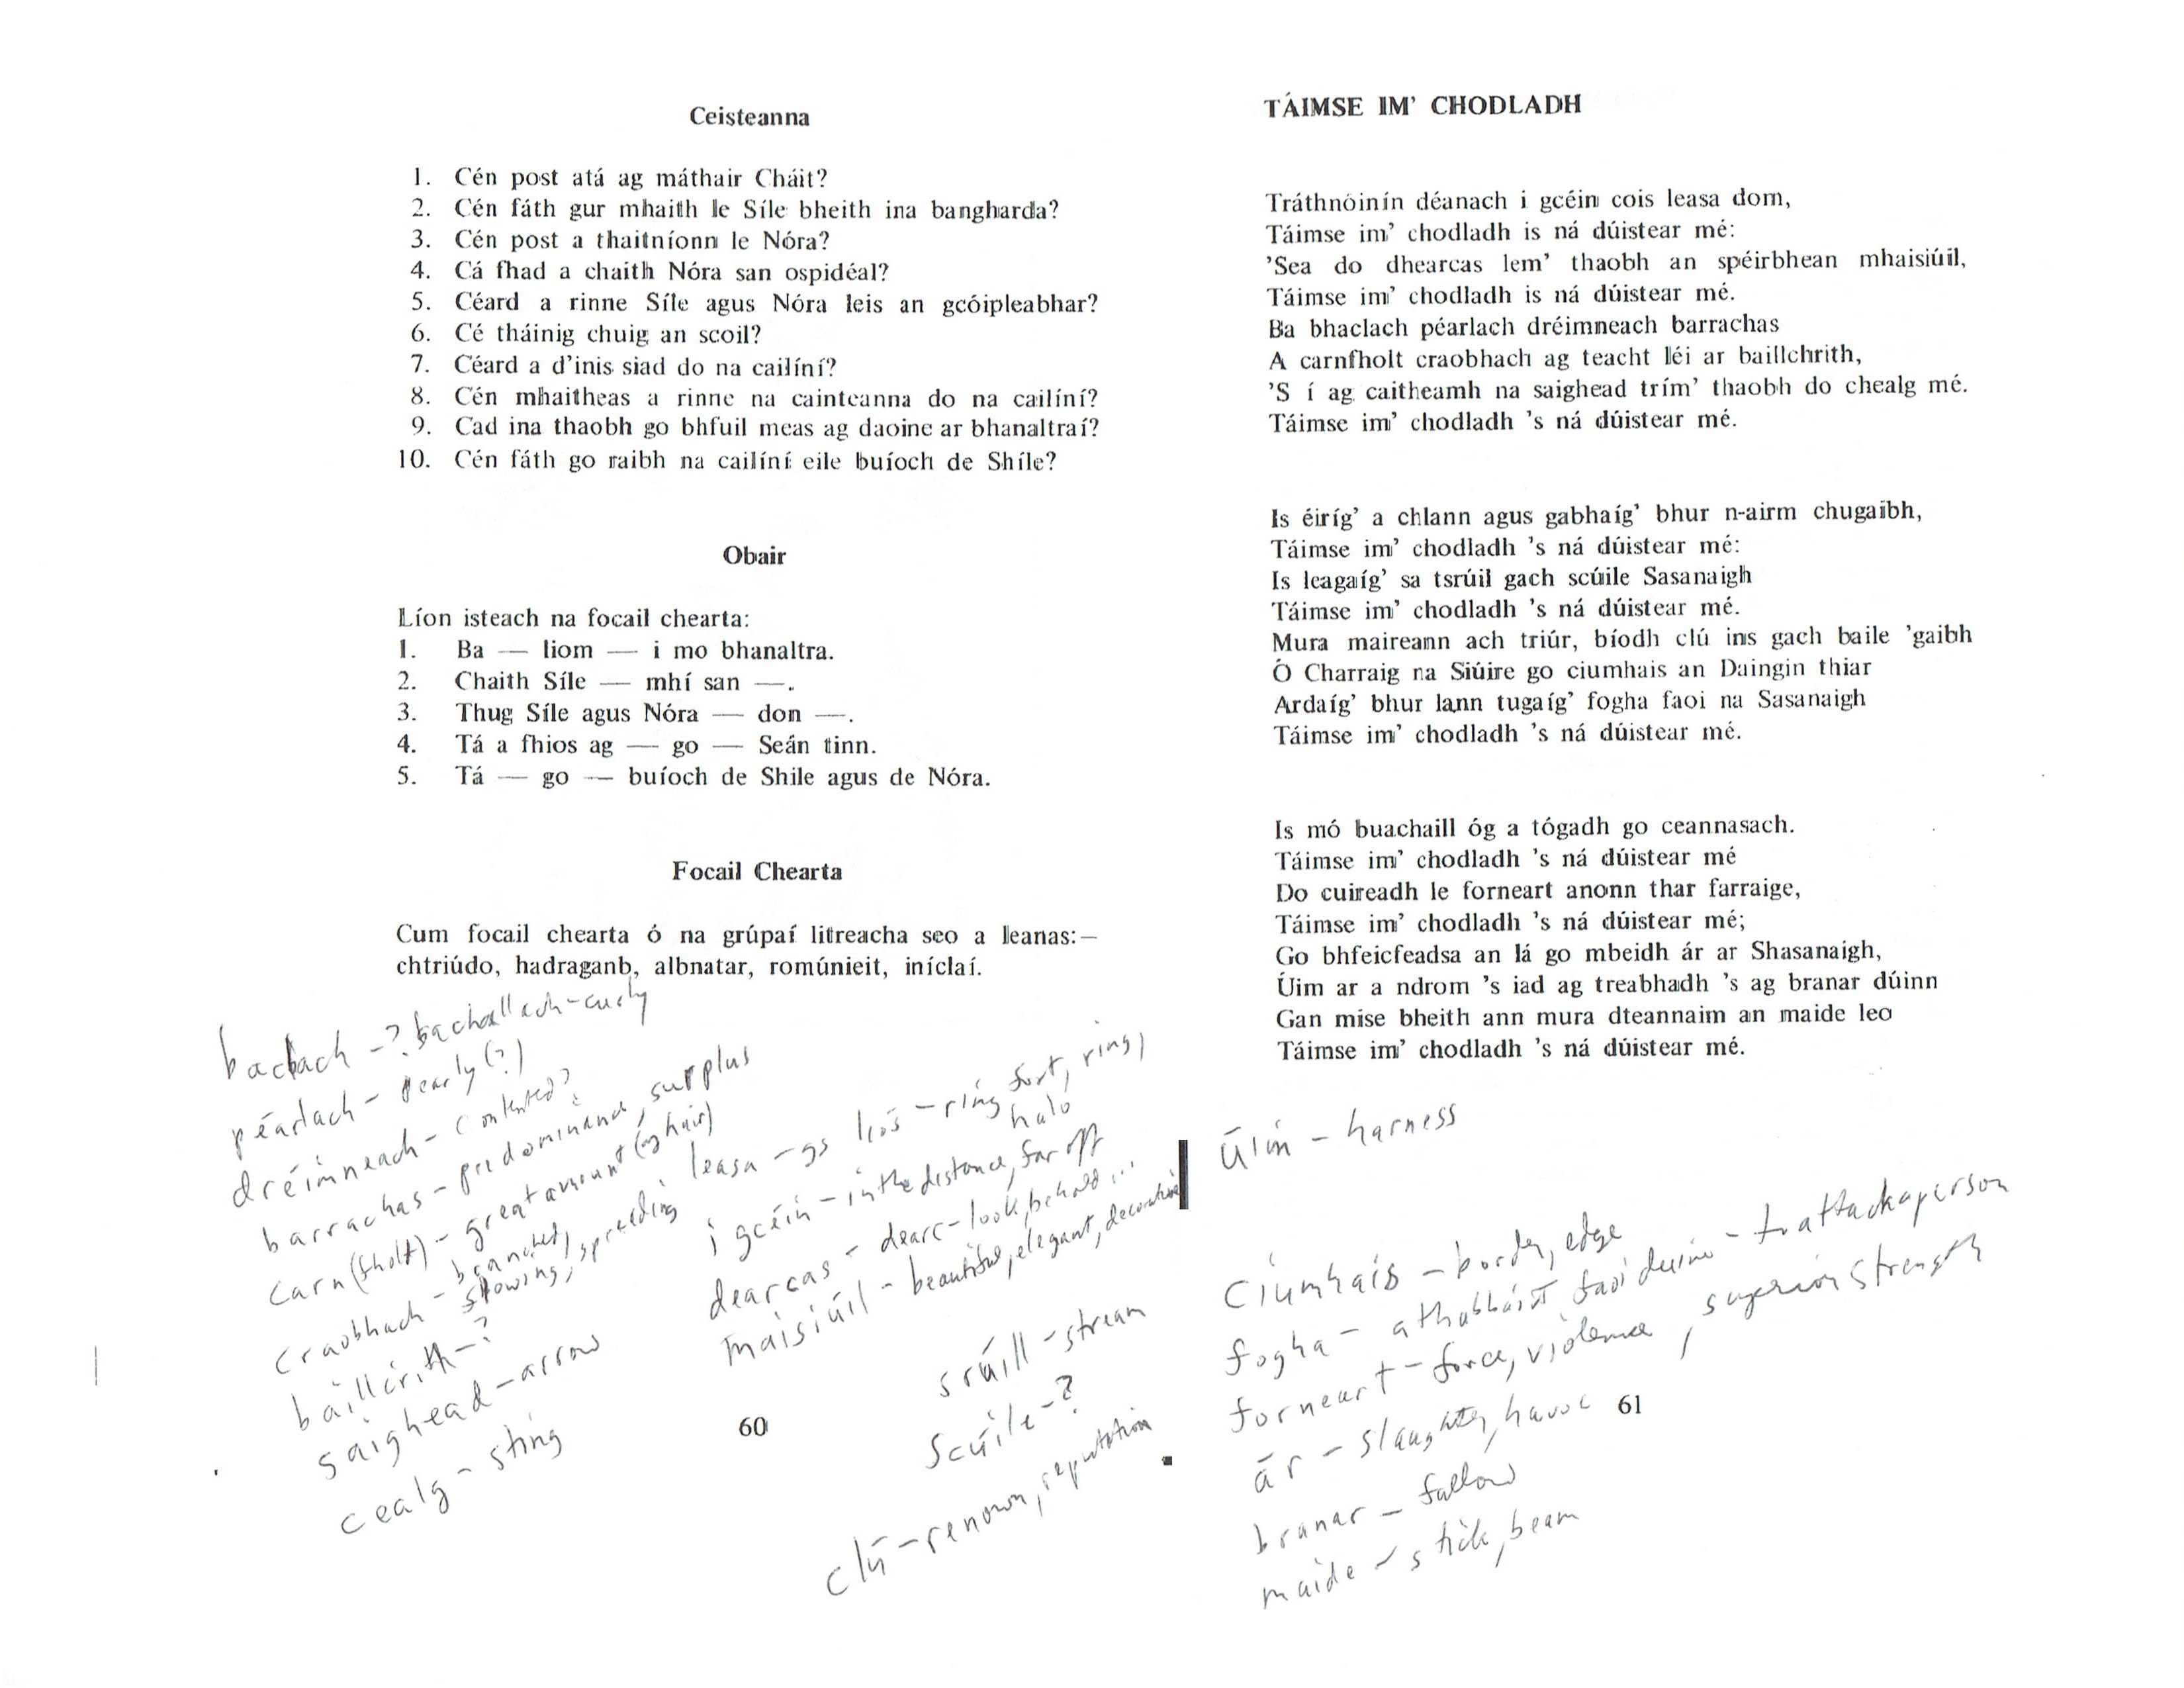 Ceisteanna
1. Cén post atá ag máthair Cháit?
2. Cén fáth gur mhaith le Síle bheith ina bangharda?
3. Cén post a thaitníonn le Nóra?
4. Cá fhad a chaith Nóra san ospidéal?
5. Céard a rinne Síle agus Nóra leis an gcóipleabhar?
6. Cé tháinig chuig an scoil?
7. Céard a d'inis siad do na cailíní?
8. Cén mhaitheas a rinne na cainteanna do na cailíní?
9. Cad ina thaobh go bhfuil meas ag daoine ar bhanaltraí?
10. Cén fáth go raibh na cailíní eile buíoch de Shíle?
Obair
Líon isteach na focail chearta:
1. Ba — liom — i mo bhanaltra.
2. Chaith Síle — mhí san —.
3. Thug Síle agus Nóra — don —.
4. Tá a fhios ag — go — Seán tinn.
5. Tá — go — buíoch de Shile agus de Nóra.
Focail Chearta
Cum focail chearta ó na grúpaí litreacha seo a leanas:—
chtriúdo, hadraganb, albnatar, romúnieit, iníclaí.
baclach - ? bachallach - curly
péarlach - pearly (?)
dréimneach - contented?
barrachas - predominance, surplus
carn(fholt) - great amount (of hair)
craobhach - branched,
flowing, spreading
baillcrith - ?
saighead - arrow
cealg - sting
leasa - gs lios - ring fort, ring,
halo
i gcéin - in the distance, far off
dearcas - dearc - look, behold...
maisiúil - beautiful, elegant, decorative
srúill - stream
scúile - ?
clú - renown, reputation
60
TÁIMSE IM' CHODLADH
Tráthnóinín déanach i gcéin cois leasa dom,
Táimse im' chodladh is ná dúistear mé:
'Sea do dhearcas lem' thaobh an spéirbhean mhaisiúil,
Táimse im' chodladh is ná dúistear mé.
Ba bhaclach péarlach dréimneach barrachas
A carnfholt craobhach ag teacht léi ar baillchrith,
'S í ag caitheamh na saighead trím' thaobh do chealg mé.
Táimse im' chodladh 's ná dúistear mé.
Is éiríg' a chlann agus gabhaíg' bhur n-airm chugaibh,
Táimse im' chodladh 's ná dúistear mé:
Is leagaíg' sa tsrúil gach scúile Sasanaigh
Táimse im' chodladh 's ná dúistear mé.
Mura maireann ach triúr, bíodh clú ins gach baile 'gaibh
Ó Charraig na Siúire go ciumhais an Daingin thiar
Ardaíg' bhur lann tugaíg' fogha faoi na Sasanaigh
Táimse im' chodladh 's ná dúistear mé.
Is mó buachaill óg a tógadh go ceannasach.
Táimse im' chodladh 's ná dúistear mé
Do cuireadh le forneart anonn thar farraige,
Táimse im' chodladh 's ná dúistear mé;
Go bhfeicfeadsa an lá go mbeidh ár ar Shasanaigh,
Úim ar a ndrom 's iad ag treabhadh 's ag branar dúinn
Gan mise bheith ann mura dteannaim an maide leo
Táimse im' chodladh 's ná dúistear mé.
Úim - harness
Ciumhais - border, edge
fogha - a thabhairt faoi duine - to attack a person
forneart - force, violence, superior strength
ár - slaughter, havoc
branar - fallow
maide - stick, beam
61